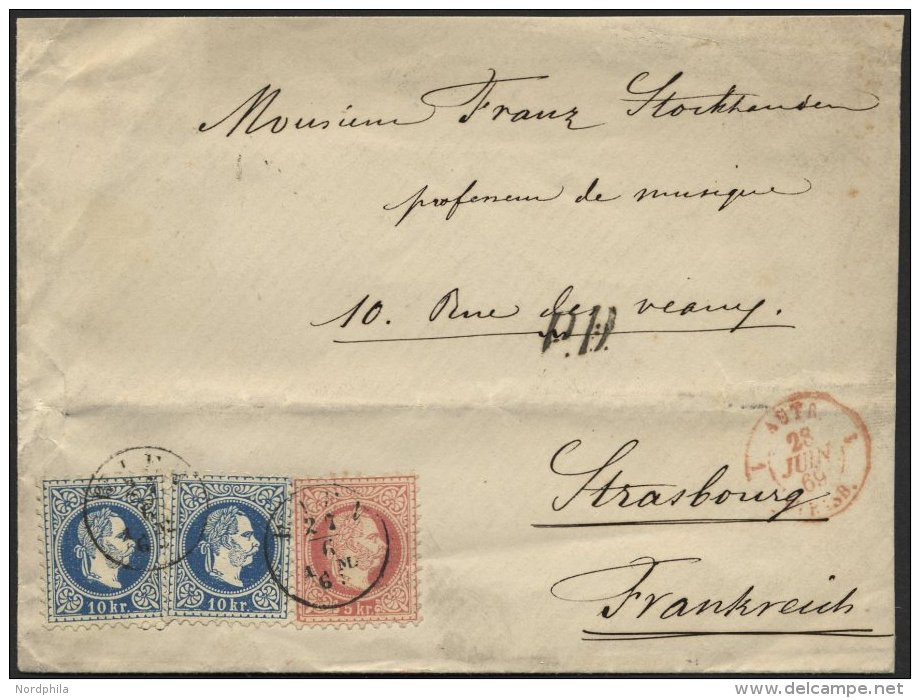 Monsieur Franz Stockhausen
professeur de musique
10. Rue des veaux.
P.D.
Strasbourg
Frankreich
AUTR
28
JUIN
69
10 kr.
10 kr.
5 kr.
27
6
Nordphila
delcampe.net